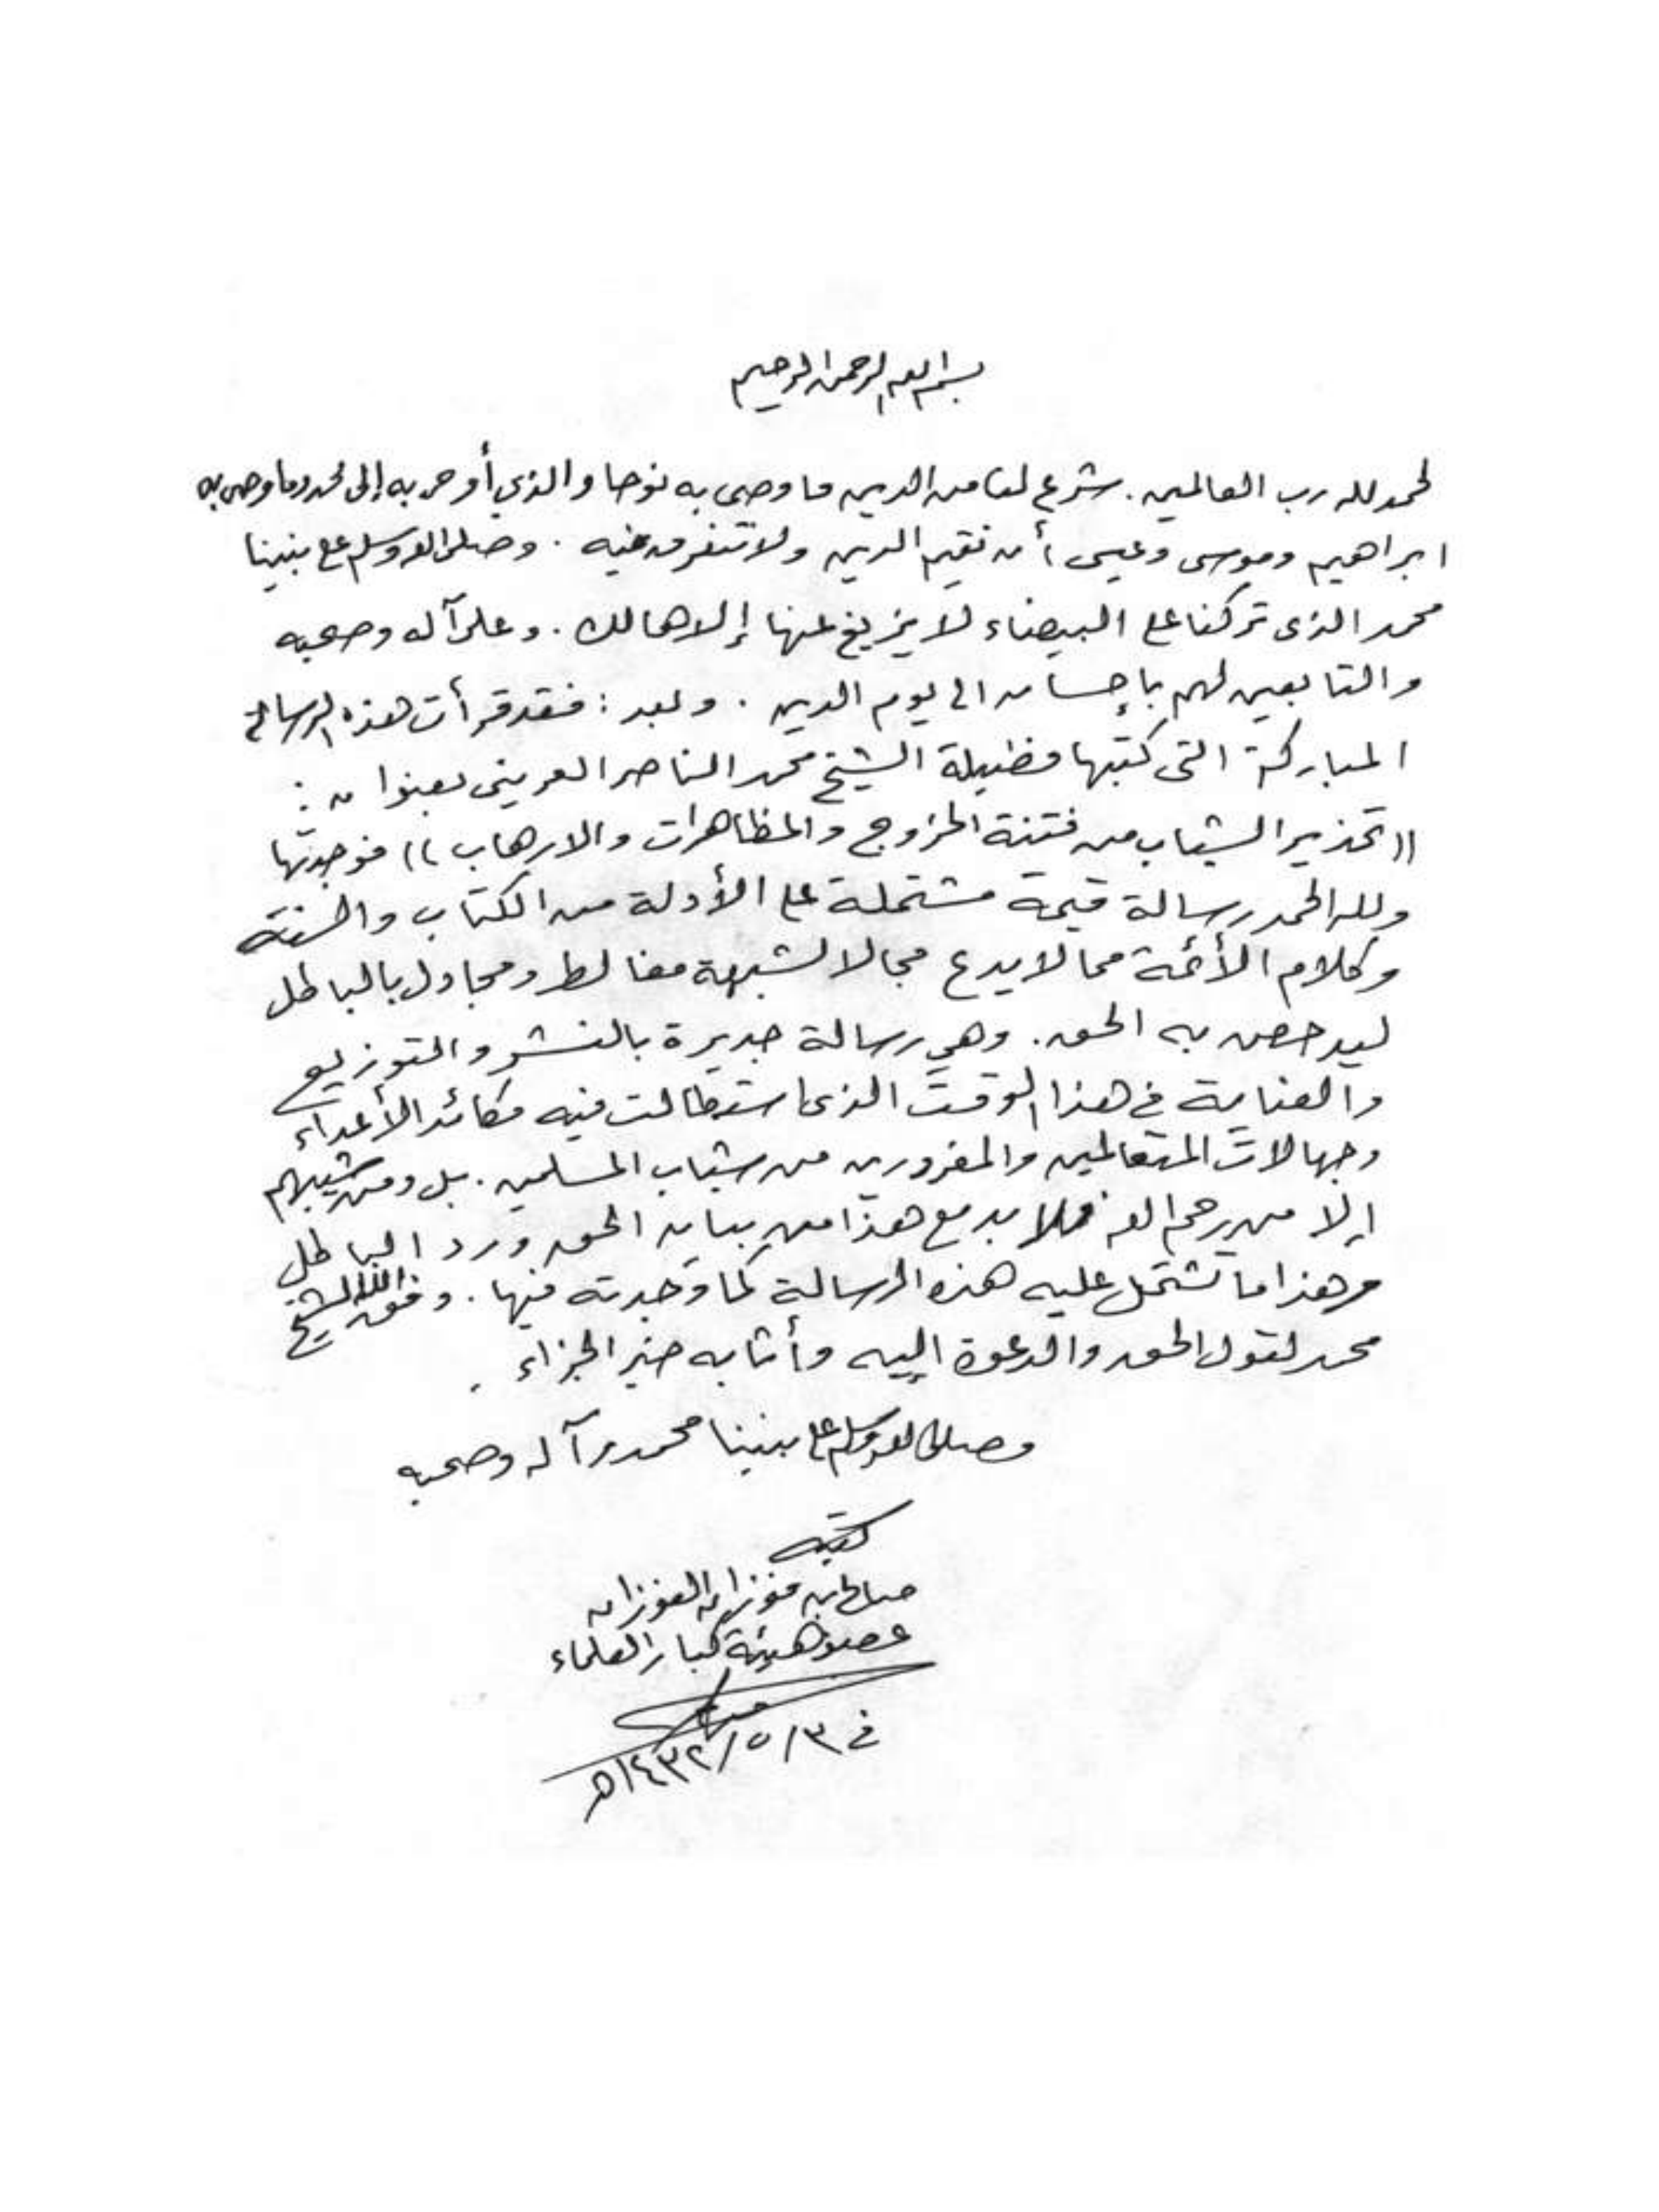 بسم الله الرحمن الرحيم
الحمد لله رب العالمين. شرع لنا من الدين ما وصى به نوحا والذي أوحى به إلى محمد وما وصى به
ابراهيم وموسى وعيسى أن نقيم الدين ولا نتفرق فيه. وصلى الله وسلم على نبينا
محمد الذى تركنا على البيضاء لا يزيغ عنها إلا هالك. وعلى آله وصحبه
والتابعين لهم بإحسان الى يوم الدين. وبعد: فقد قرأت هذه الرسالة
المباركة التى كتبها فضيلة الشيخ محمد الناصر العرينى بعنوان:
((تحذير الشباب من فتنة الخروج والمظاهرات والارهاب)) فوجدتها
ولله الحمد رسالة قيمة مشتملة على الأدلة من الكتاب والسنة
وكلام الأئمة مما لا يدع مجالا لشبهة مغالط ومجادل بالباطل
ليدحض به الحق. وهي رسالة جديرة بالنشر والتوزيع
والعناية في هذا الوقت الذى استطالت فيه مكائد الأعداء
وجهالات المتعالمين والمغرورين من شباب المسلمين. بل ومن شيبهم
إلا من رحم الله فلا بد مع هذا من بيان الحق ورد الباطل
وهذا ما تشتمل عليه هذه الرسالة كما وجدته فيها. وفق الله الشيخ
محمد لقول الحق والدعوة إليه وأثابه خير الجزاء.
وصلى الله وسلم على نبينا محمد وآله وصحبه
كتبه
صالح بن فوزان الفوزان
عضو هيئة كبار العلماء
في ٣/٥/١٤٣٢هـ